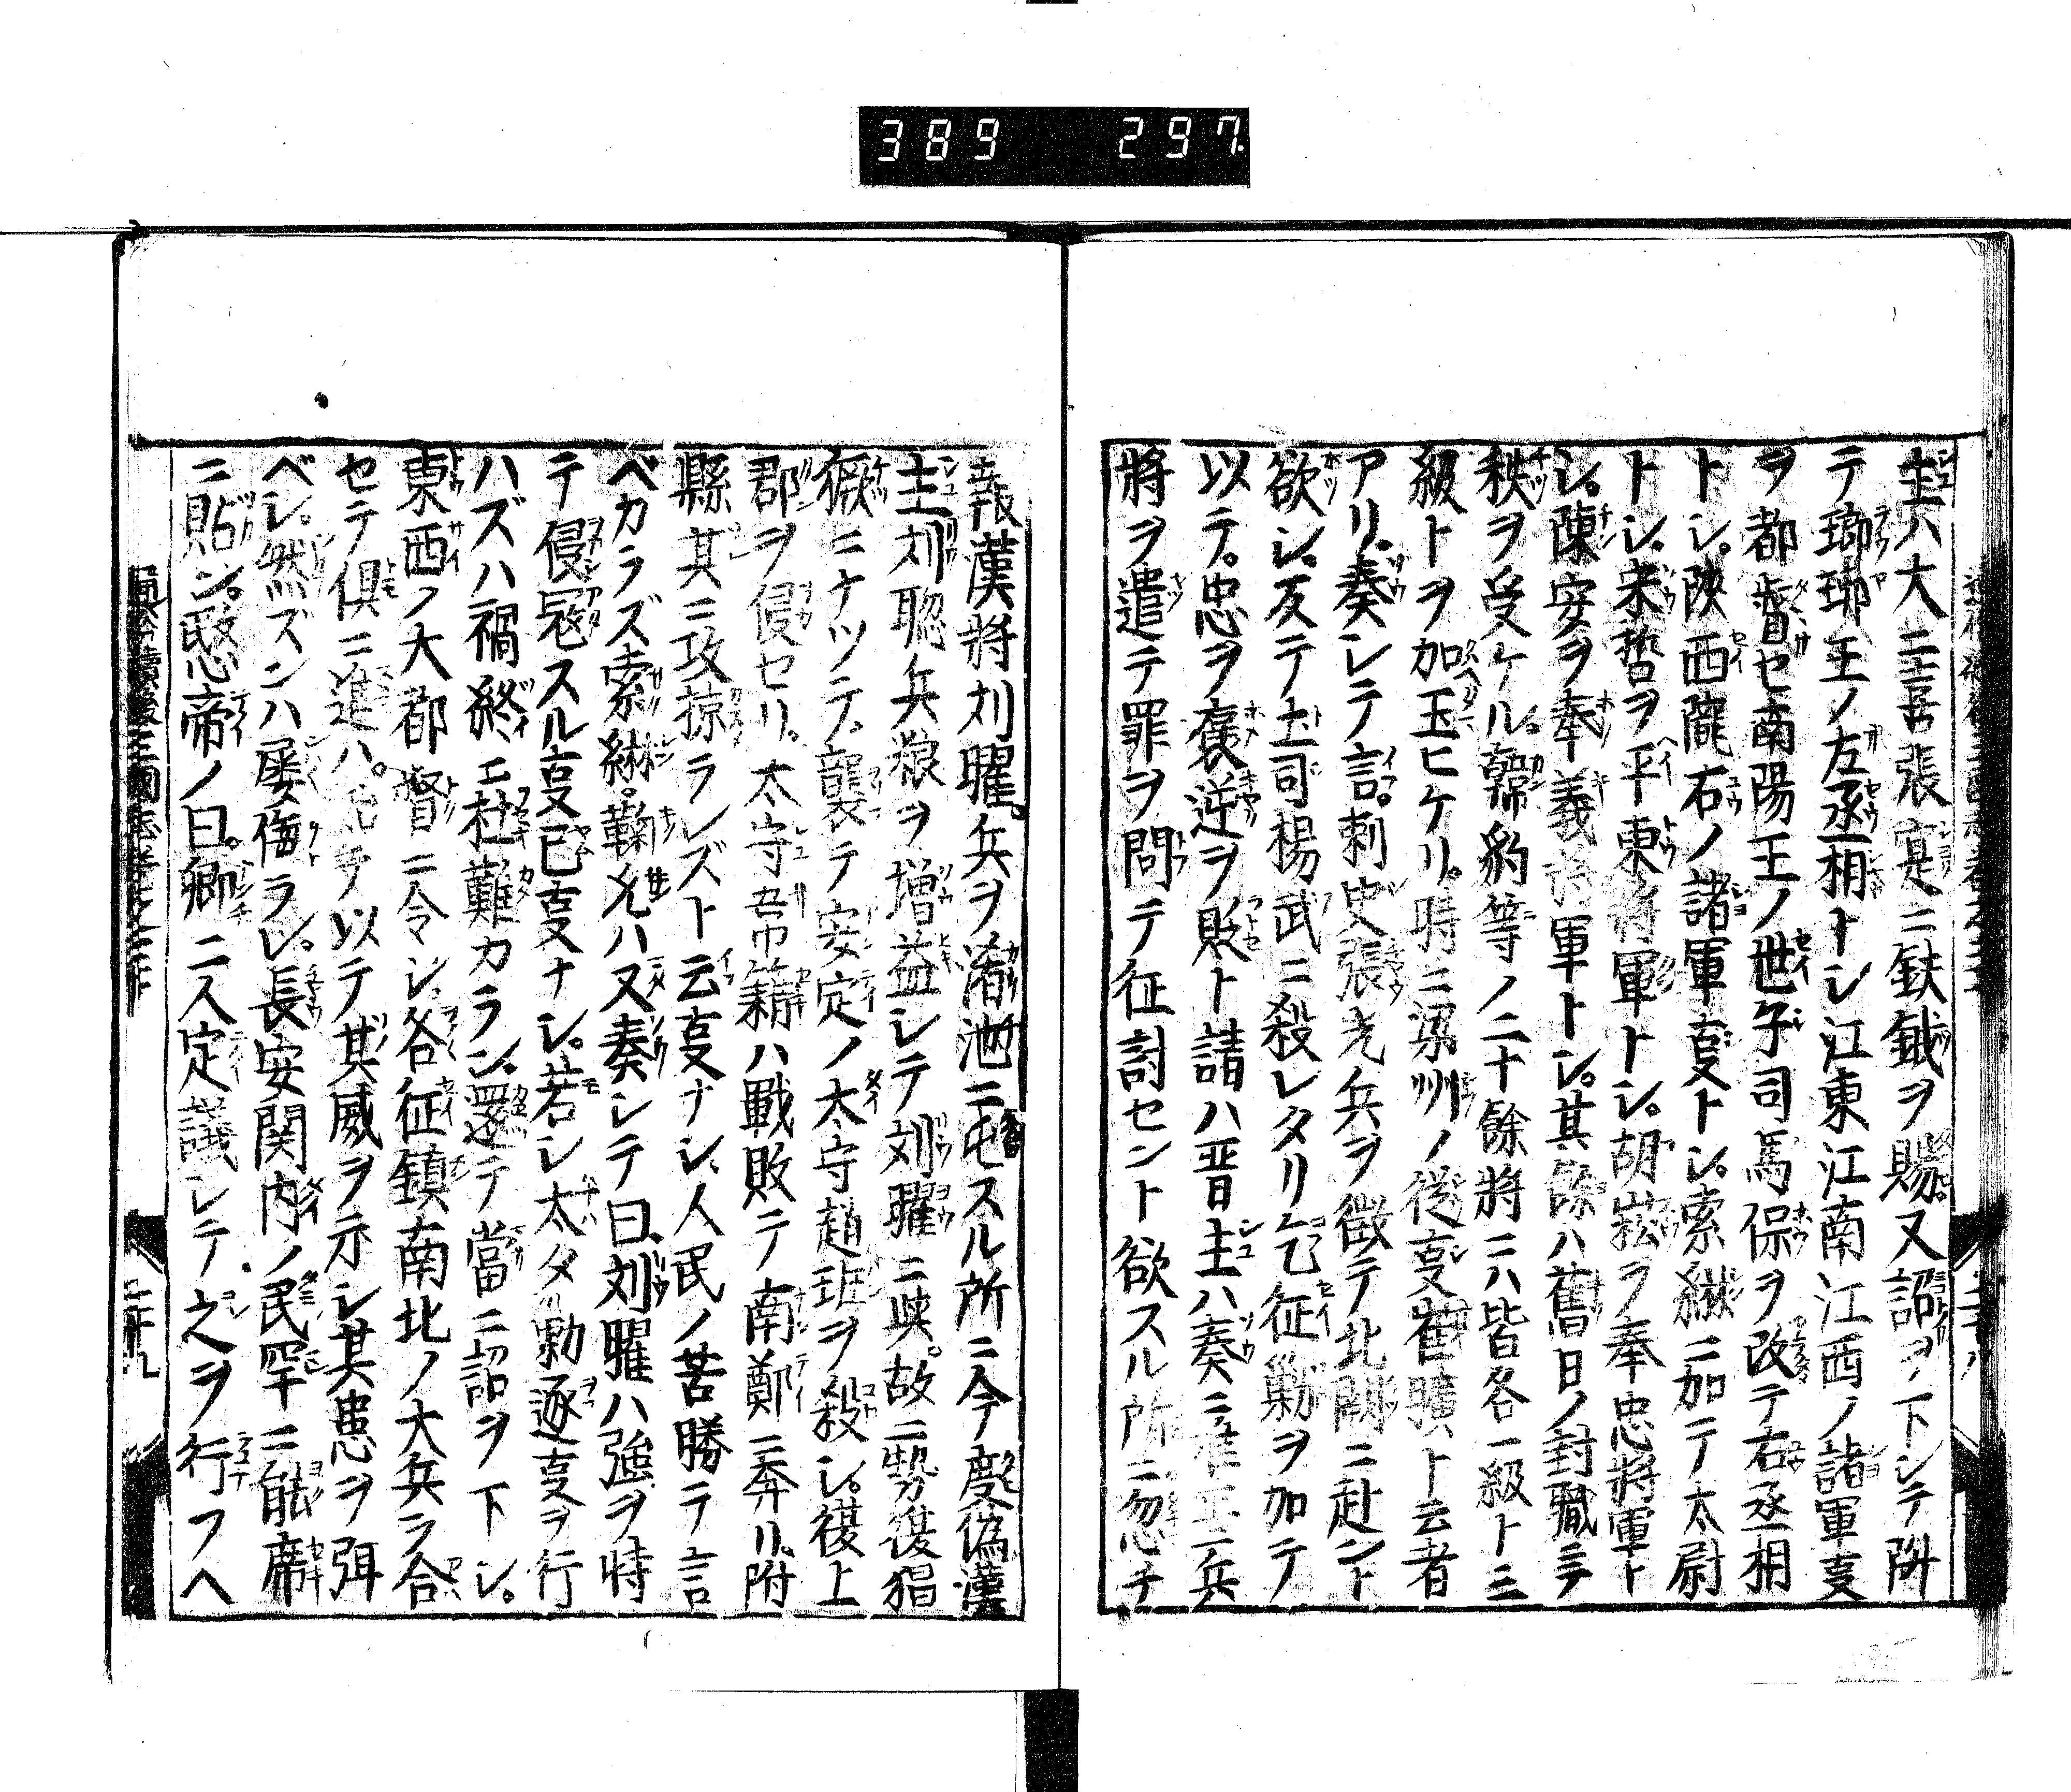 389 297
主ハ大ニ喜張寔ニ鈇鉞ヲ賜又詔ヲ下シテ陞
テ瑯琊王ノ左丞相トシ江東江南江西ノ諸軍叓
ヲ都督セ南陽王ノ世子司馬保ヲ改テ右丞相
トシ。陝西隴右ノ諸軍叓トシ。索綝ニ加テ太尉
トシ。宋哲ヲ平東将軍トシ。胡崧ヲ奉忠將軍ト
シ。陳安ヲ奉義将軍トシ。其餘ハ舊日ノ封職ニテ
秩ヲ受ケル。韓豹等ノ二十餘將ニハ皆各一級ト三
級トヲ加玉ヒケリ。時ニ梁州ノ從叓崔曠ト云者
アリ。奏シテ言。刺史張光兵ヲ徴テ北闕ニ赴ント
欲シ。反テ土司楊武ニ殺レタリ乞征剿ヲ加テ
以テ。忠ヲ褒逆ヲ貶ト請ハ晋主ハ奏ニ准正ニ兵
將ヲ遣テ罪ヲ問テ征討セント欲スル所ニ忽チ
報漢將刘曜。兵ヲ渑池ニ屯スル所ニ今度偽漢
主刘聡兵粮ヲ増益シテ刘曜ニ與。故ニ勢復猖
獗ニナツテ。襲テ安定ノ太守趙班ヲ殺シ。復上
郡ヲ侵セリ。太守籍ハ戰敗テ南鄭ニ奔リ。附
縣其ニ攻掠ラレズト云叓ナシ、人民ノ苦勝テ言
ベカラズ索綝。鞠允ハ又奏シテ曰、刘曜ハ強ヲ恃
テ侵冦スル叓已叓ナシ。若シ太タ勦逐叓ヲ行
ハズハ禍終ニ杜難カラン。還テ當ニ詔ヲ下シ。
東西ノ大都督ニ令シ、各征鎮南北ノ大兵ヲ合
セテ俱ニ進ハ。以テ其威ヲ示シ其患ヲ弭
ベシ。然ズンハ屡侮ラレ。長安関内ノ民罕ニ能席
ニ貼ン。愍帝ノ曰。卿二人定議シテ之ヲ行フヘ